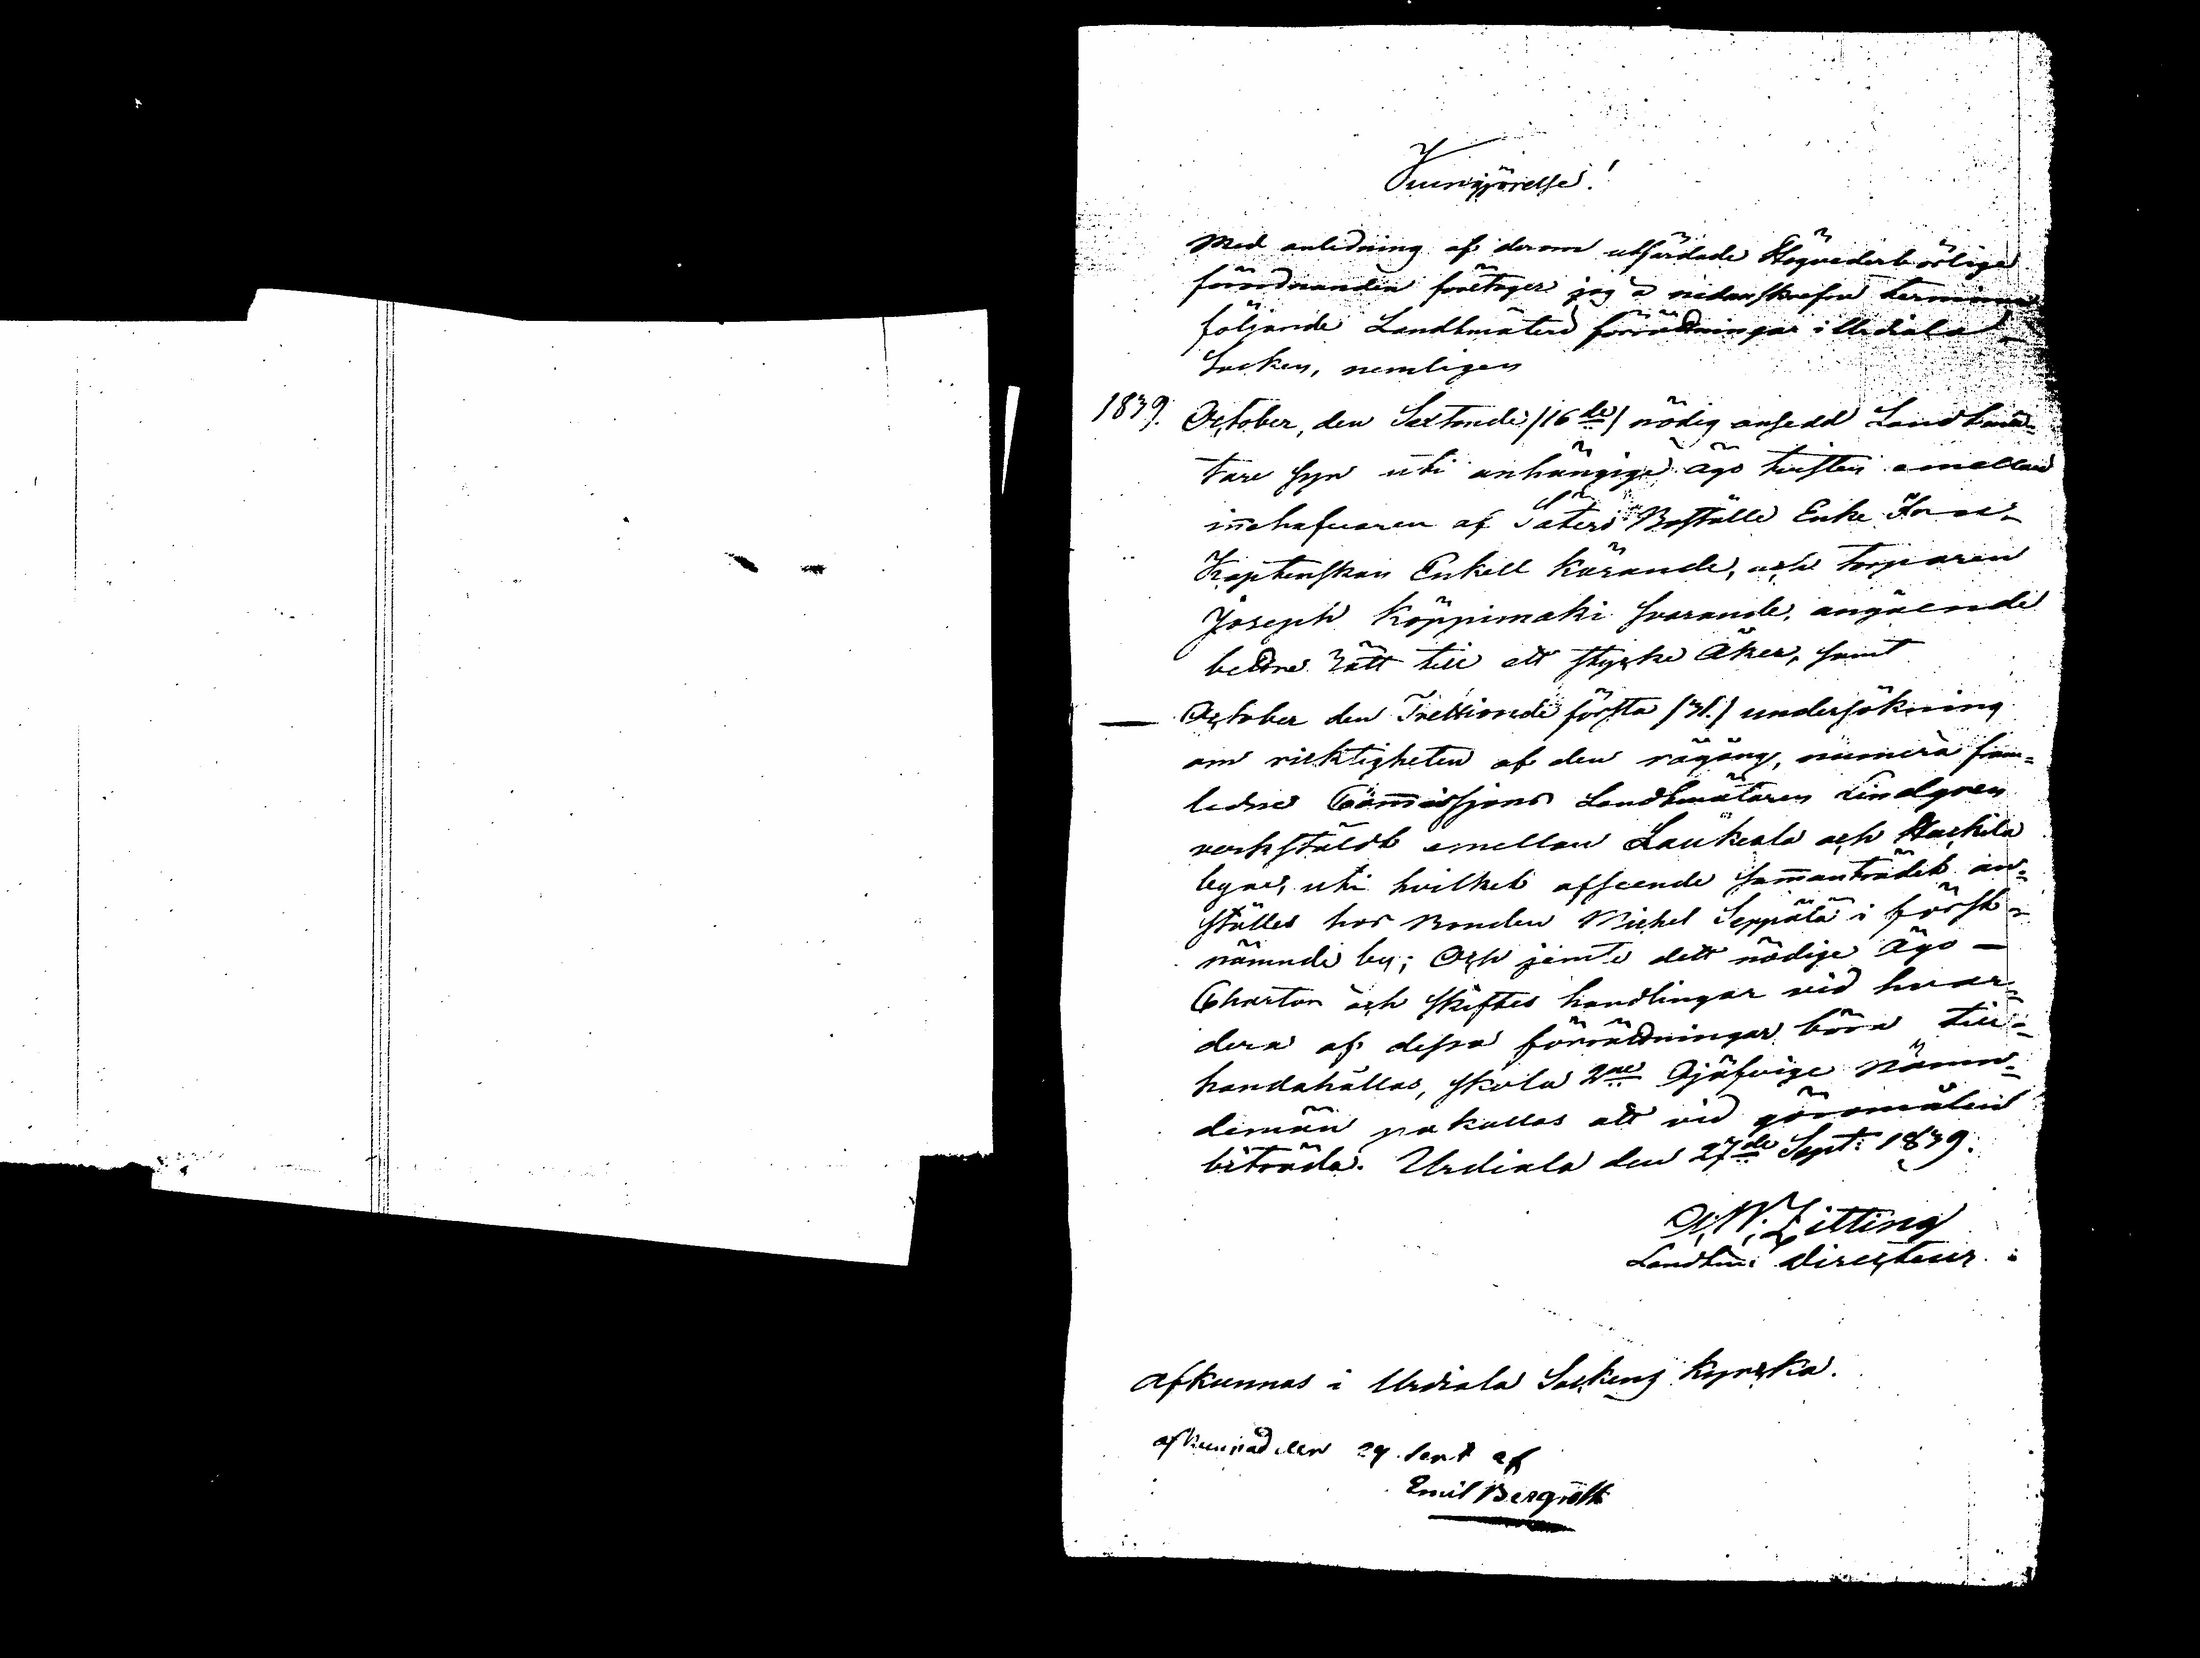 Kungjörelse!
Med anledning af derom utfärdade Högvederbörlige
förordnanden företager jag å nedanskrefne terminer
följande Landtmäteri förrättningar i Urdiala
Socken, nemligen
1839. October, den Sextonde /16de/ nödig ansedd Landtmä-
tare syn uti anhängige ägo tvisten emellan
innehafvaren af Säteri Boställe Enke Fru
Kaptenskan Enkell Kärande, och torparen
Joseph Köppimäki svarande, angående
bettre rätt till ett stycke Åker, samt
— October den Trettionde första /31./ undersökning
om riktigheten af den rågång, numera fram-
ledne Commissions Landtmätaren Lindgren
verkstäldt emellan Laukeala och Huhkila
byar, uti hvilket afseende sammanträdet an-
ställes hos Bonden Michel Seppälä i först-
nämnde by; Och jemte dett nödige Ägo —
Chartor och skiftes handlingar vid hvar-
dera af dessa förrättningar böra till-
handahållas, skola 2ne Ojäfvige Nämn-
demän påkallas att vid göromålen
biträda. Urdiala den 27de Sept: 1839.
A. W. Zitting
Landtm: Directeur
Afkunnas i Urdiala Sockens Kyrcka.
afkunnad den 29 Sept af
Emil Bergroth